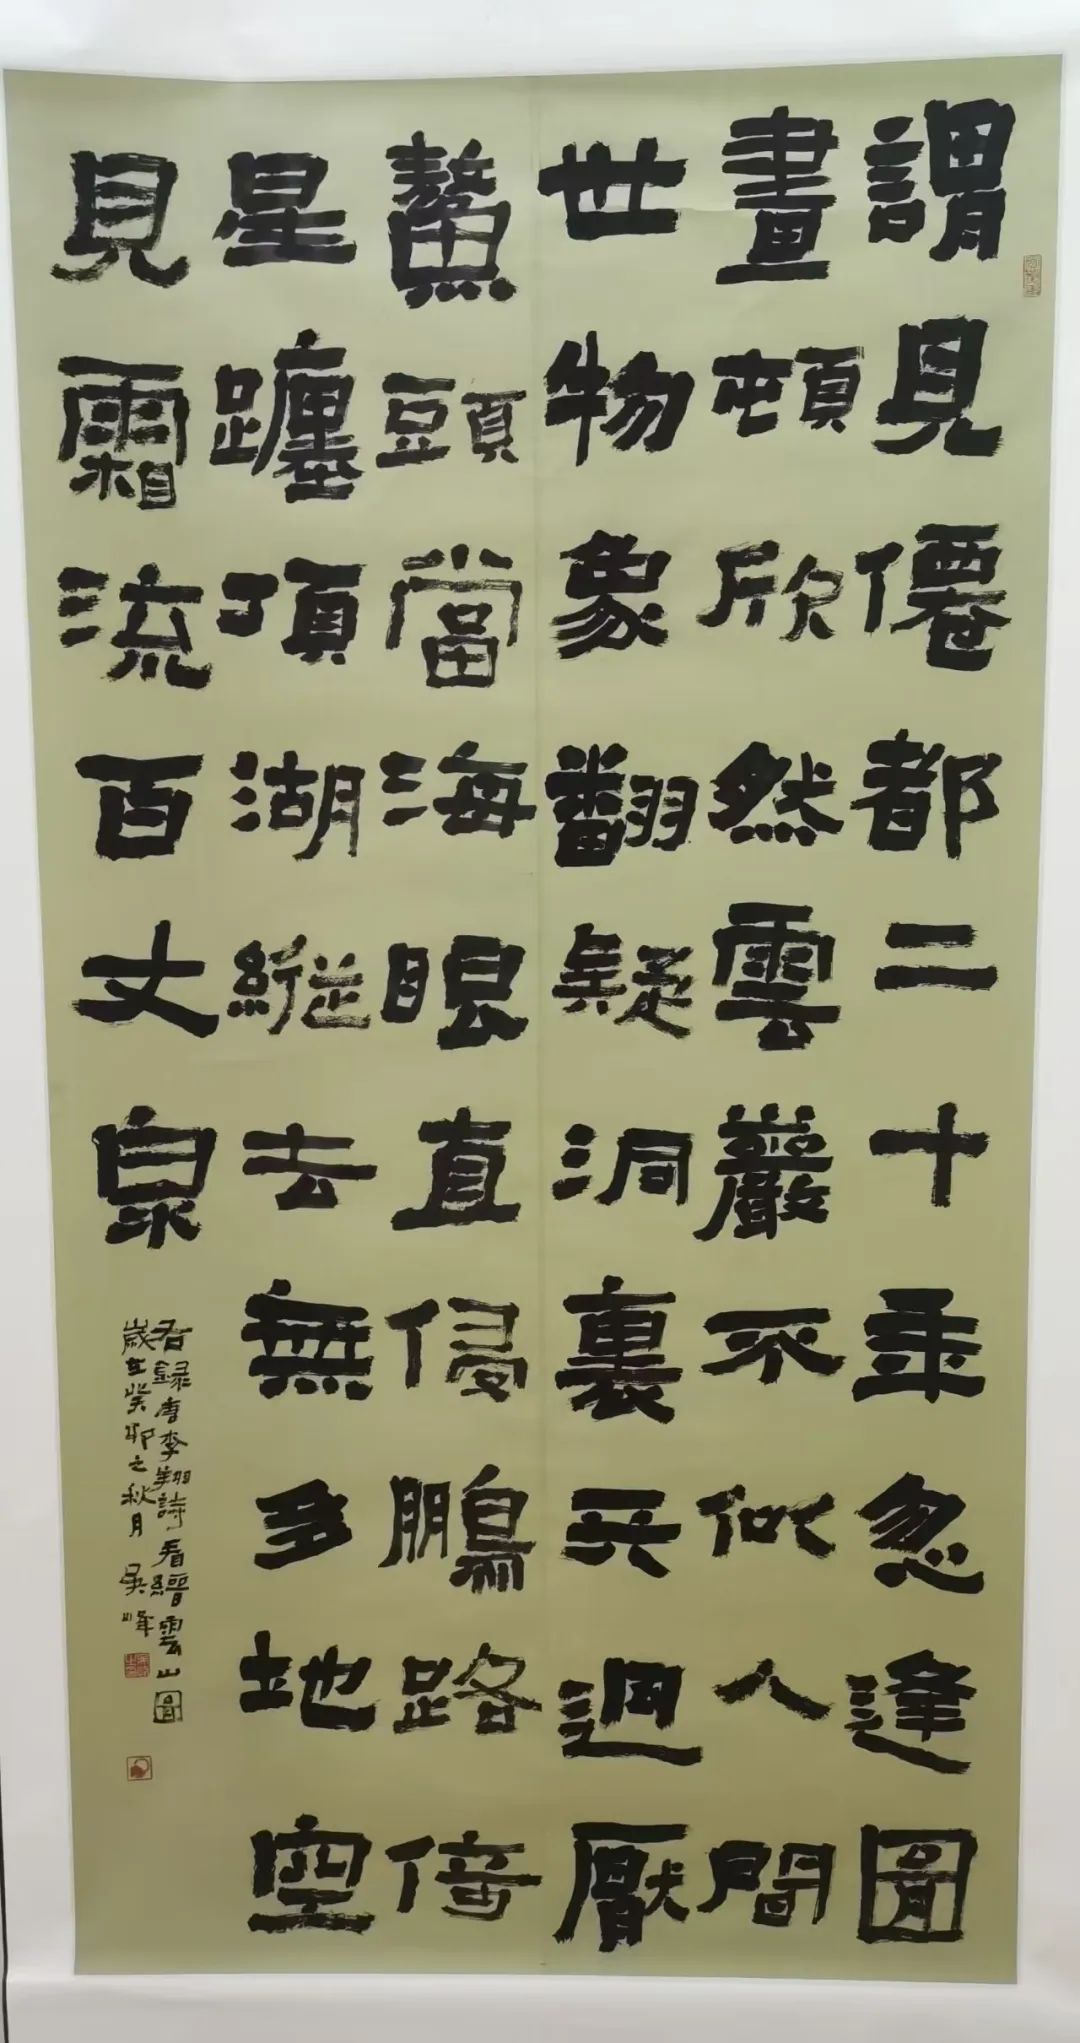 謂見僊都二十年忽逢圖
畫頓欣然雲巖不似人間
世物象翻疑洞裏天週厭
鰲頭當海眼直侵鵬路倚
星躔頂湖縱去無多地空
見霜流百丈泉
右録唐李翔詩看縉雲山圖
歲在癸卯之秋月 吳峰